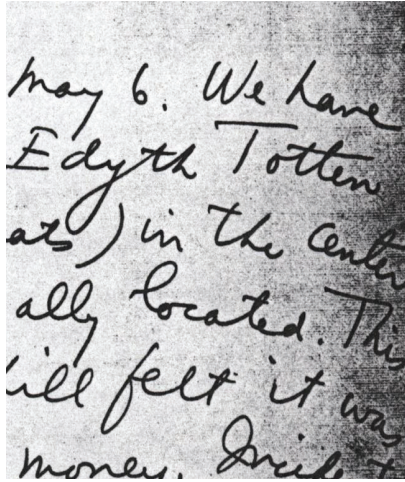 May 6. We have
Edyth Totten
ats) in the center
ally located. This
ill felt it was
money. Incide